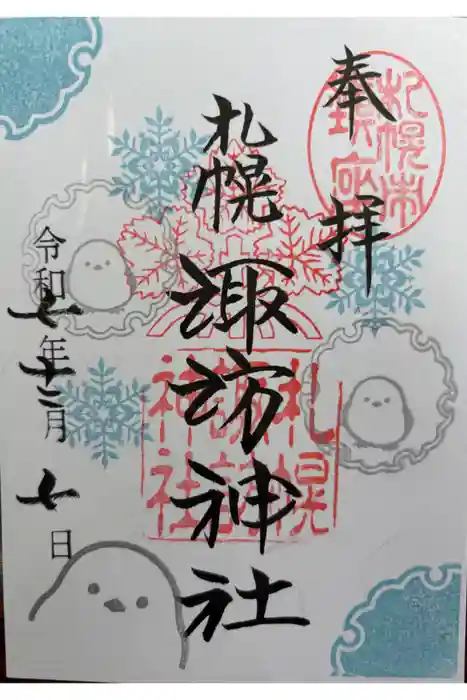 奉拝
札幌市
鎮座
札幌諏訪神社
札幌
諏訪
神社
令和七年十二月七日